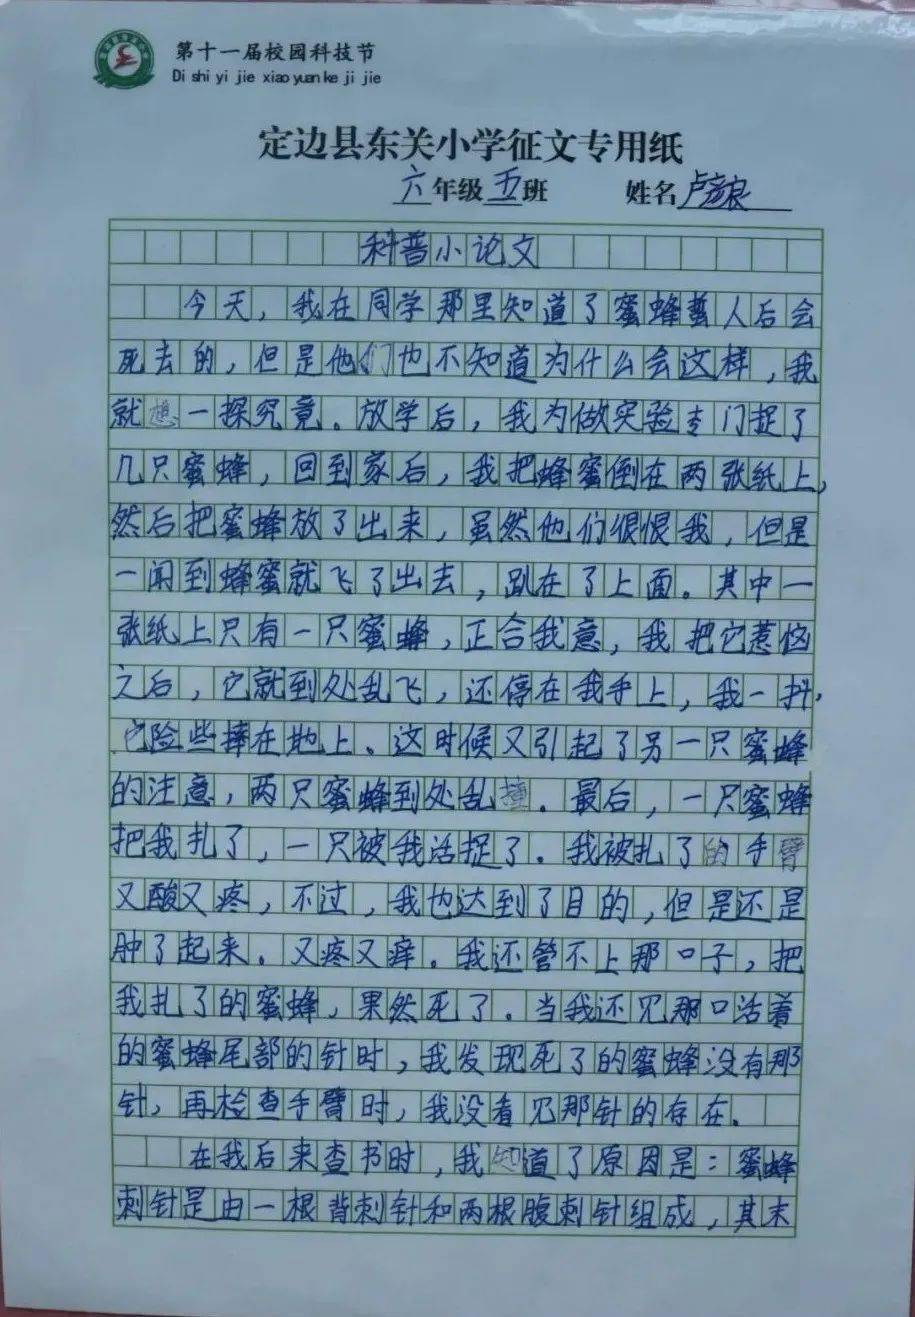 第十一届校园科技节
Di shi yi jie xiao yuan ke ji jie
定边县东关小学征文专用纸
六年级五班 姓名卢彦良
科普小论文
今天，我在同学那里知道了蜜蜂蜇人后会
死去的，但是他们也不知道为什么会这样，我
就想一探究竟。放学后，我为做实验专门捉了
几只蜜蜂，回到家后，我把蜂蜜倒在两张纸上，
然后把蜜蜂放了出来，虽然他们很恨我，但是
一闻到蜂蜜就飞了出去，趴在了上面。其中一
张纸上只有一只蜜蜂，正合我意，我把它惹恼
之后，它就到处乱飞，还停在我手上，我一抖，
它险些摔在地上、这时候又引起了另一只蜜蜂
的注意，两只蜜蜂到处乱撞。最后，一只蜜蜂
把我扎了，一只被我活捉了。我被扎了的手臂
又酸又疼，不过，我也达到了目的，但是还是
肿了起来。又疼又痒。我还管不上那口子，把
我扎了的蜜蜂，果然死了。当我还见那口活着
的蜜蜂尾部的针时，我发现死了的蜜蜂没有那
针，再检查手臂时，我没看见那针的存在。
在我后来查书时，我知道了原因是：蜜蜂
刺针是由一根背刺针和两根腹刺针组成，其末